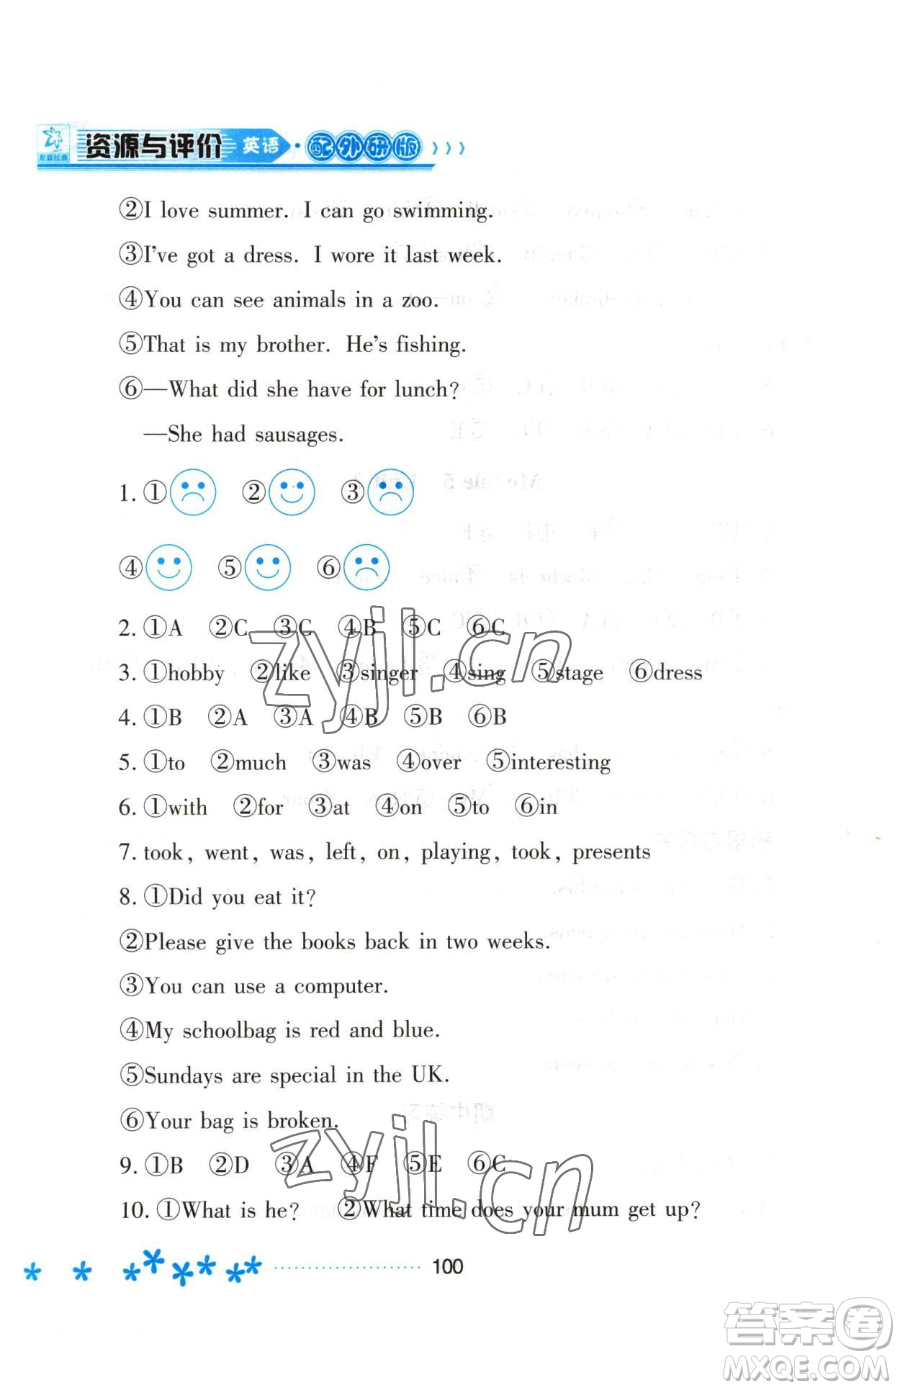 资源与评价 英语·配外研版 》》》
②I love summer. I can go swimming.
③I've got a dress. I wore it last week.
④You can see animals in a zoo.
⑤That is my brother. He's fishing.
⑥—What did she have for lunch?
—She had sausages.
1. ① ② ③
④ ⑤ ⑥
2. ①A ②C ③C ④B ⑤C ⑥C
3. ①hobby ②like ③singer ④sing ⑤stage ⑥dress
4. ①B ②A ③A ④B ⑤B ⑥B
5. ①to ②much ③was ④over ⑤interesting
6. ①with ②for ③at ④on ⑤to ⑥in
7. took, went, was, left, on, playing, took, presents
8. ①Did you eat it?
②Please give the books back in two weeks.
③You can use a computer.
④My schoolbag is red and blue.
⑤Sundays are special in the UK.
⑥Your bag is broken.
9. ①B ②D ③A ④F ⑤E ⑥C
10. ①What is he? ②What time does your mum get up?
100
zyjl.cn
zyjl.cn
答案圈
MXQE.COM